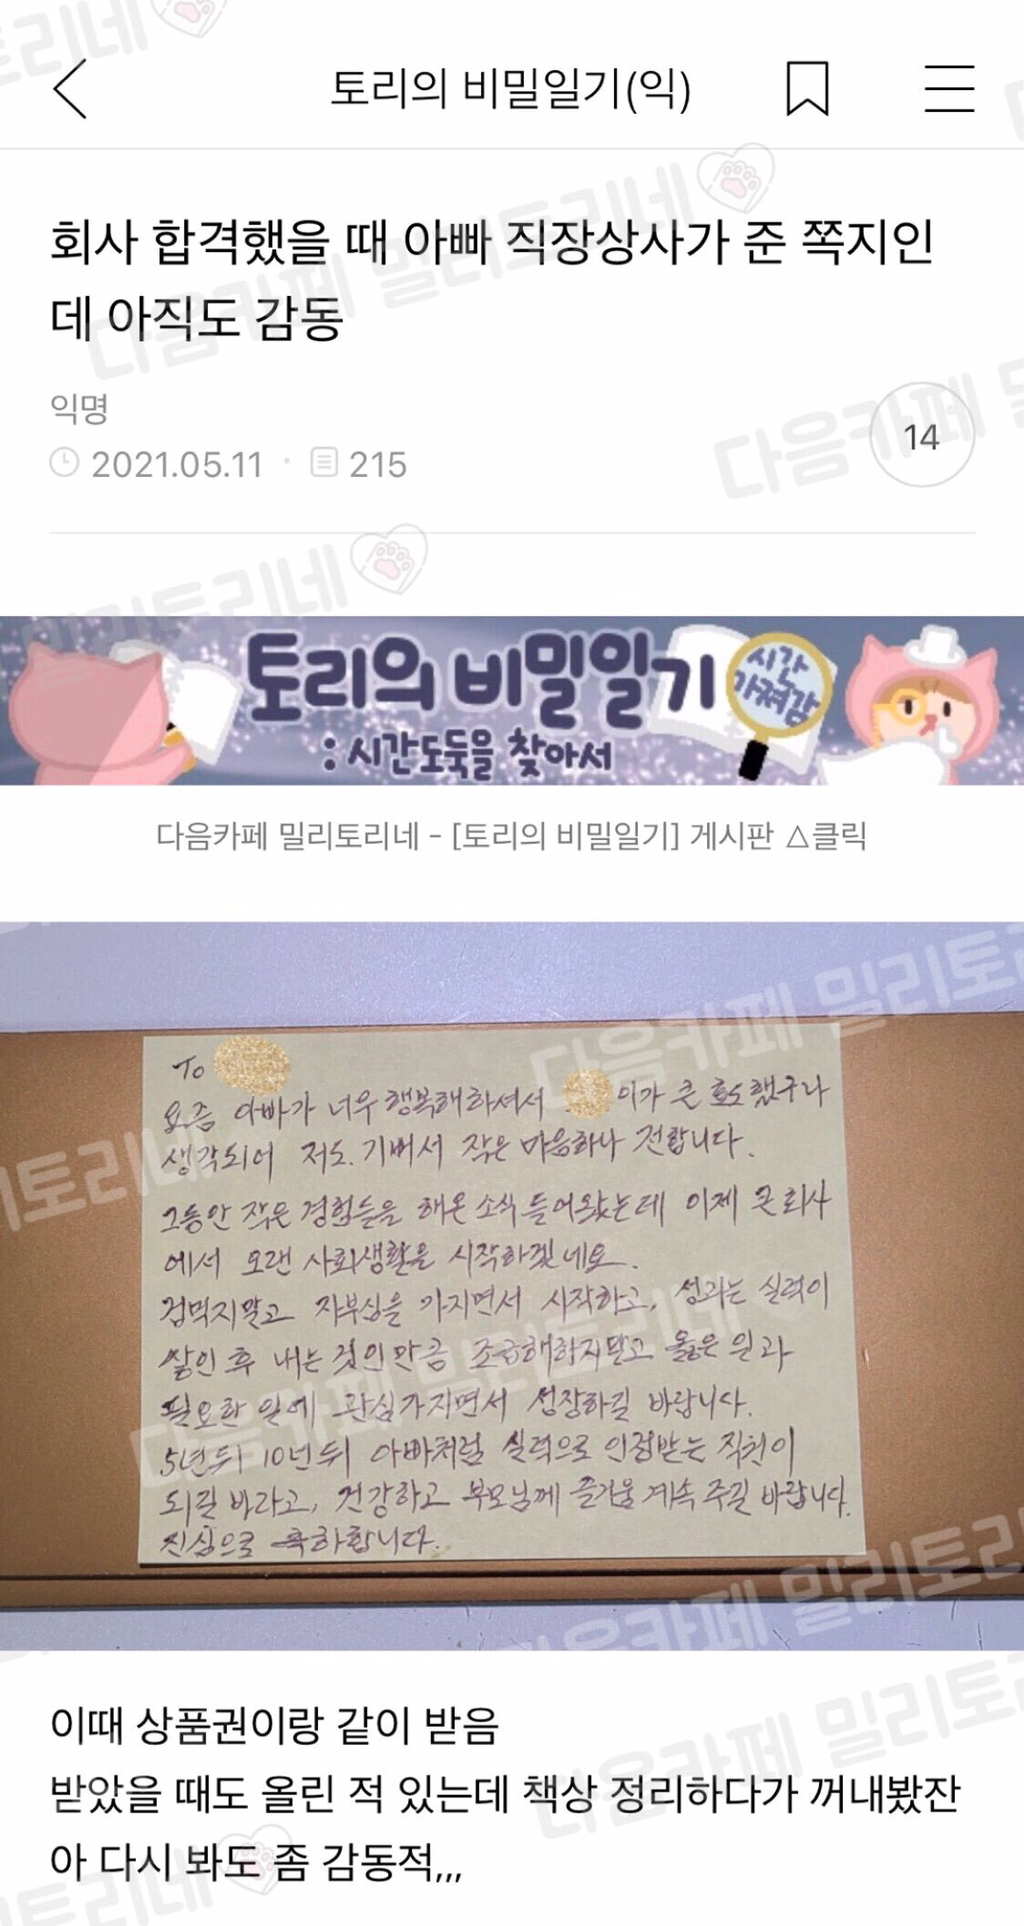 토리의 비밀일기(익)
회사 합격했을 때 아빠 직장상사가 준 쪽지인
데 아직도 감동
익명
14
2021.05.11 · 215
토리의 비밀일기
시간
가져감
:시간도둑을 찾아서
다음카페 밀리토리네 - [토리의 비밀일기] 게시판 △클릭
To
요즘 아빠가 너무 행복해하셔서 이가 큰 효도했구나
생각되어 저도 기뻐서 작은 마음하나 전합니다.
그동안 작은 경험들을 해온 소식 들어왔는데 이제 큰 회사
에서 오랜 사회생활을 시작하겠네요.
겁먹지말고 자부심을 가지면서 시작하고, 성과는 실력이
쌓인 후 내는 것인만큼 조급해하지말고 옳은 일과
필요한 일에 관심가지면서 성장하길 바랍니다.
5년뒤 10년뒤 아빠처럼 실력으로 인정받는 직원이
되길 바라고, 건강하고 부모님께 즐거움 계속 주길 바랍니다.
진심으로 축하합니다.
이때 상품권이랑 같이 받음
받았을 때도 올린 적 있는데 책상 정리하다가 꺼내봤잔
아 다시 봐도 좀 감동적,,,
다음카페 밀리토리네